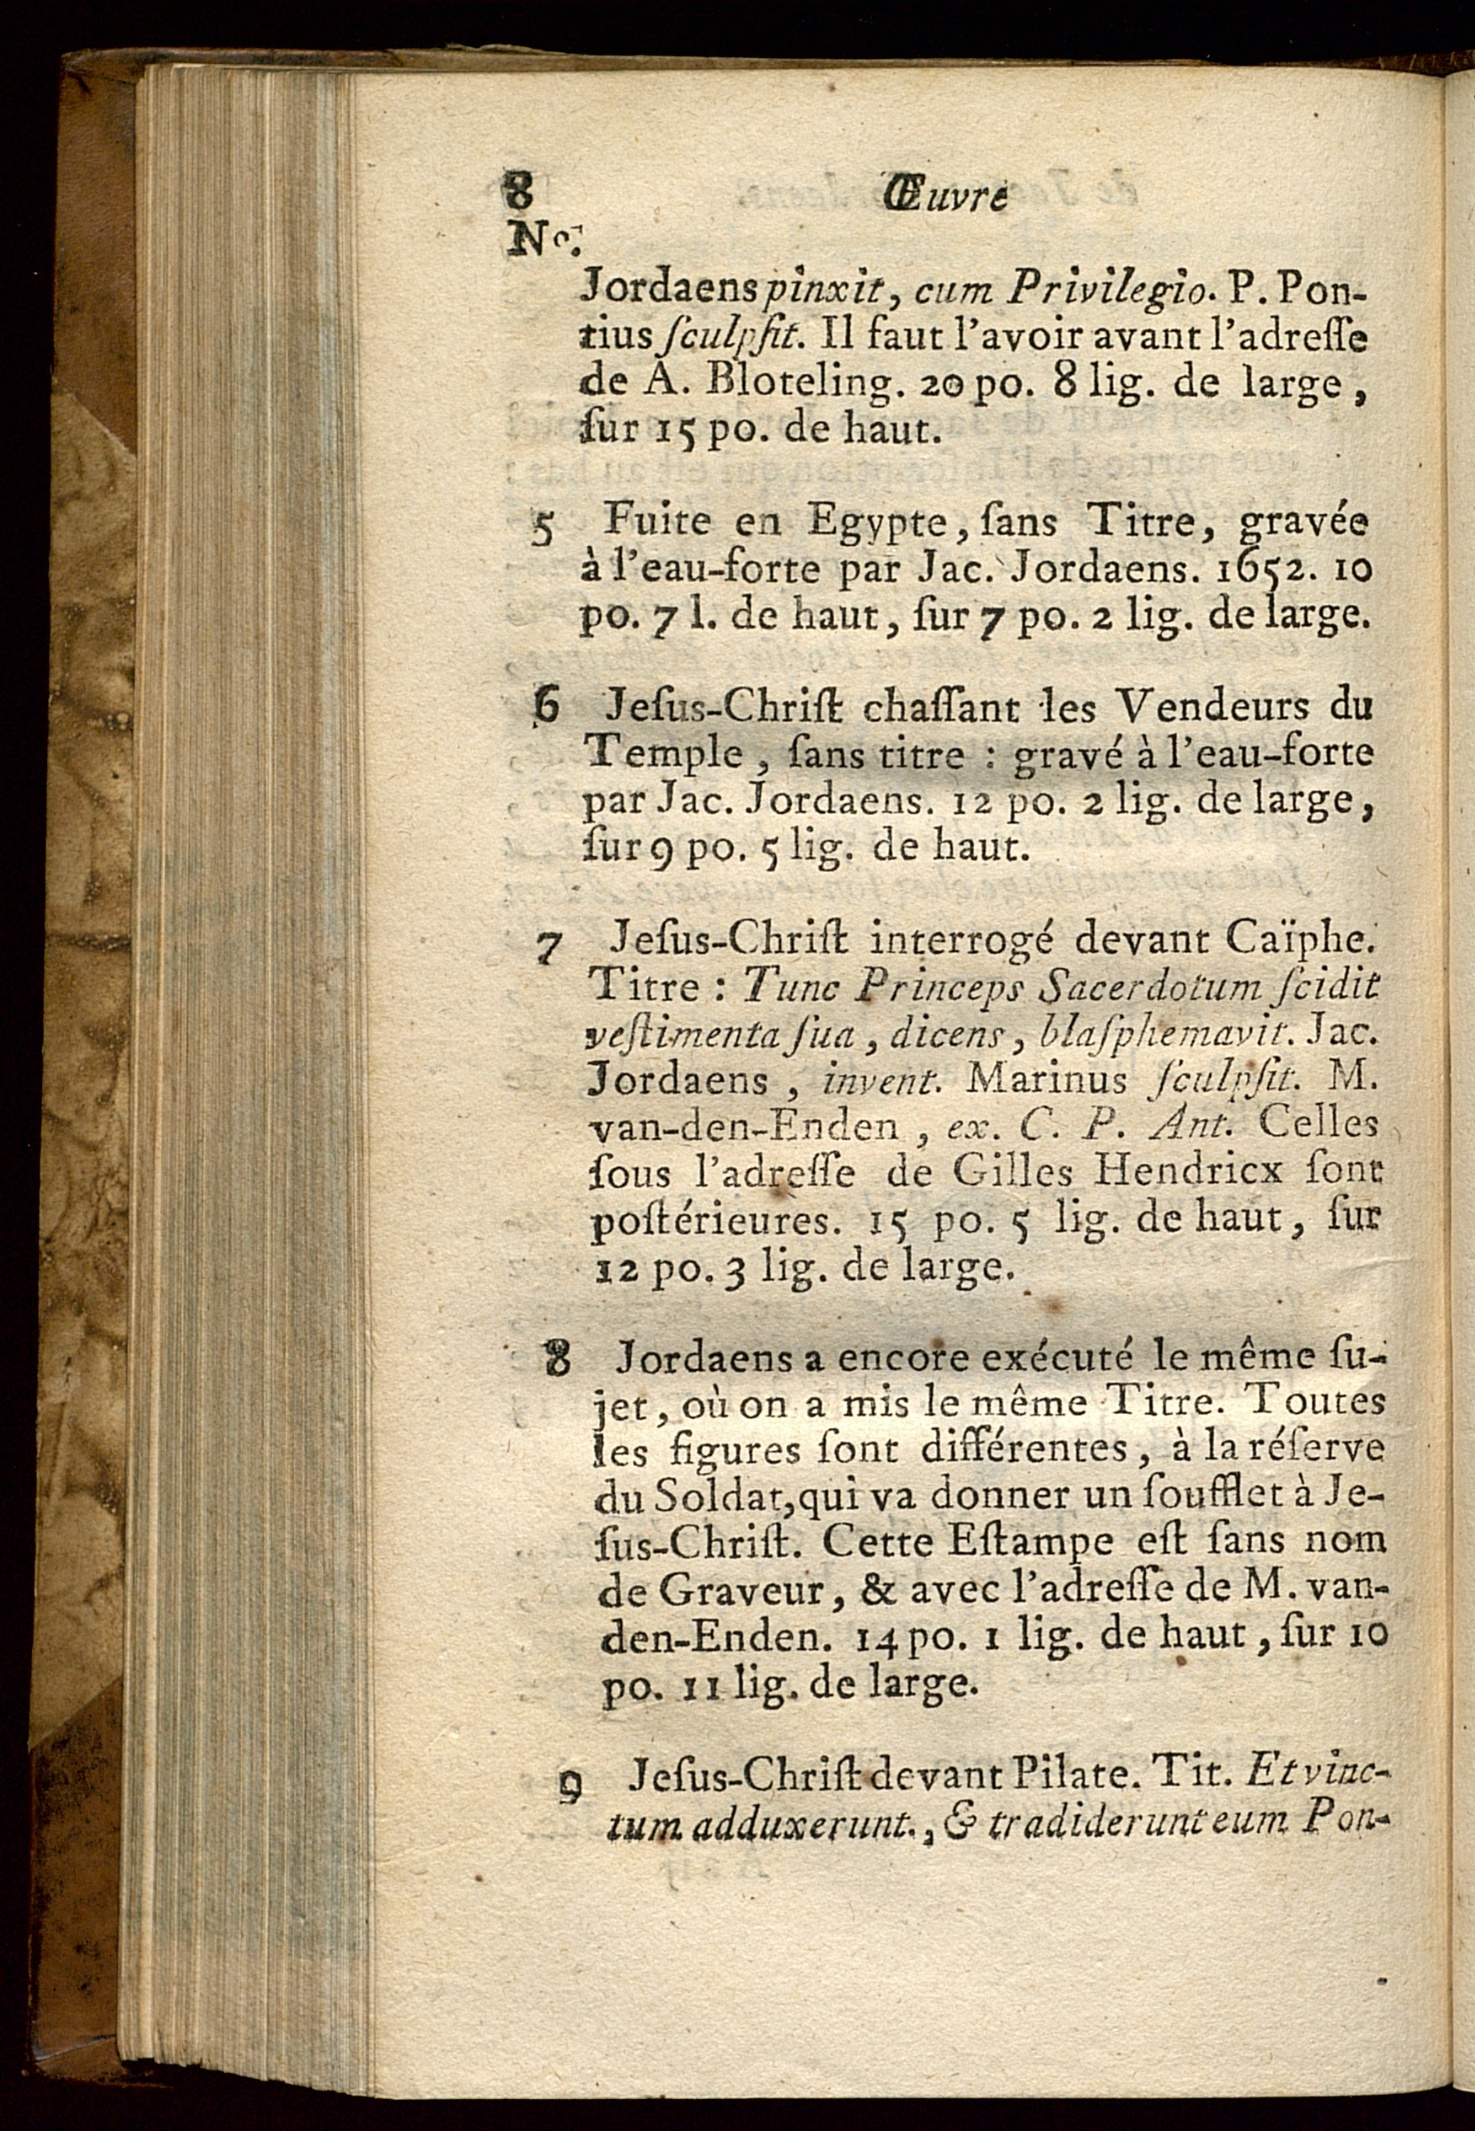 8 Œuvre
No.
Jordaens pinxit, cum Privilegio. P. Pon-
tius ſculpſit. Il faut l'avoir avant l'adreſſe
de A. Bloteling. 20 po. 8 lig. de large,
ſur 15 po. de haut.
5 Fuite en Egypte, ſans Titre, gravée
à l'eau-forte par Jac. Jordaens. 1652. 10
po. 7 l. de haut, ſur 7 po. 2 lig. de large.
6 Jeſus-Chriſt chaſſant les Vendeurs du
Temple, ſans titre : gravé à l'eau-forte
par Jac. Jordaens. 12 po. 2 lig. de large,
ſur 9 po. 5 lig. de haut.
7 Jeſus-Chriſt interrogé devant Caïphe.
Titre : Tunc Princeps Sacerdotum ſcidit
veſtimenta ſua, dicens, blaſphemavit. Jac.
Jordaens, invent. Marinus ſculpſit. M.
van-den-Enden, ex. C. P. Ant. Celles
ſous l'adreſſe de Gilles Hendricx ſont
poſtérieures. 15 po. 5 lig. de haut, ſur
12 po. 3 lig. de large.
8 Jordaens a encore exécuté le même ſu-
jet, où on a mis le même Titre. Toutes
les figures ſont différentes, à la réſerve
du Soldat, qui va donner un ſoufflet à Je-
ſus-Chriſt. Cette Eſtampe eſt ſans nom
de Graveur, & avec l'adreſſe de M. van-
den-Enden. 14 po. 1 lig. de haut, ſur 10
po. 11 lig. de large.
9 Jeſus-Chriſt devant Pilate. Tit. Et vinc-
tum adduxerunt., & tradiderunt eum Pon-